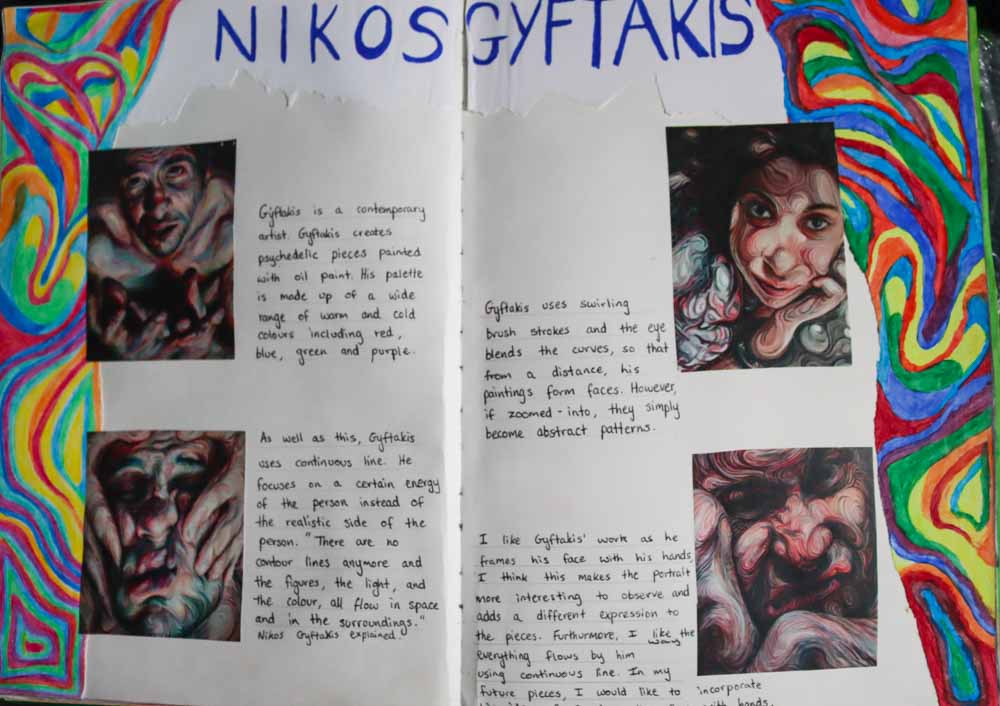 NIKOS GYFTAKIS
Gyftakis is a contemporary
artist. Gyftakis creates
psychedelic pieces painted
with oil paint. His palette
is made up of a wide
range of warm and cold
colours including red,
blue, green and purple.
As well as this, Gyftakis
uses continuous line. He
focuses on a certain energy
of the person instead of
the realistic side of the
person. "There are no
contour lines anymore and
the figures, the light, and
the colour, all flow in space
and in the surroundings."
Nikos Gyftakis explained.
Gyftakis uses swirling
brush strokes and the eye
blends the curves, so that
from a distance, his
paintings form faces. However,
if zoomed-into, they simply
become abstract patterns.
I like Gyftakis' work as he
frames his face with his hands,
I think this makes the portrait
more interesting to observe and
adds a different expression to
the pieces. Furthurmore, I like the
way
everything flows by him
using continuous line. In my
future pieces, I would like to incorporate
with hands.